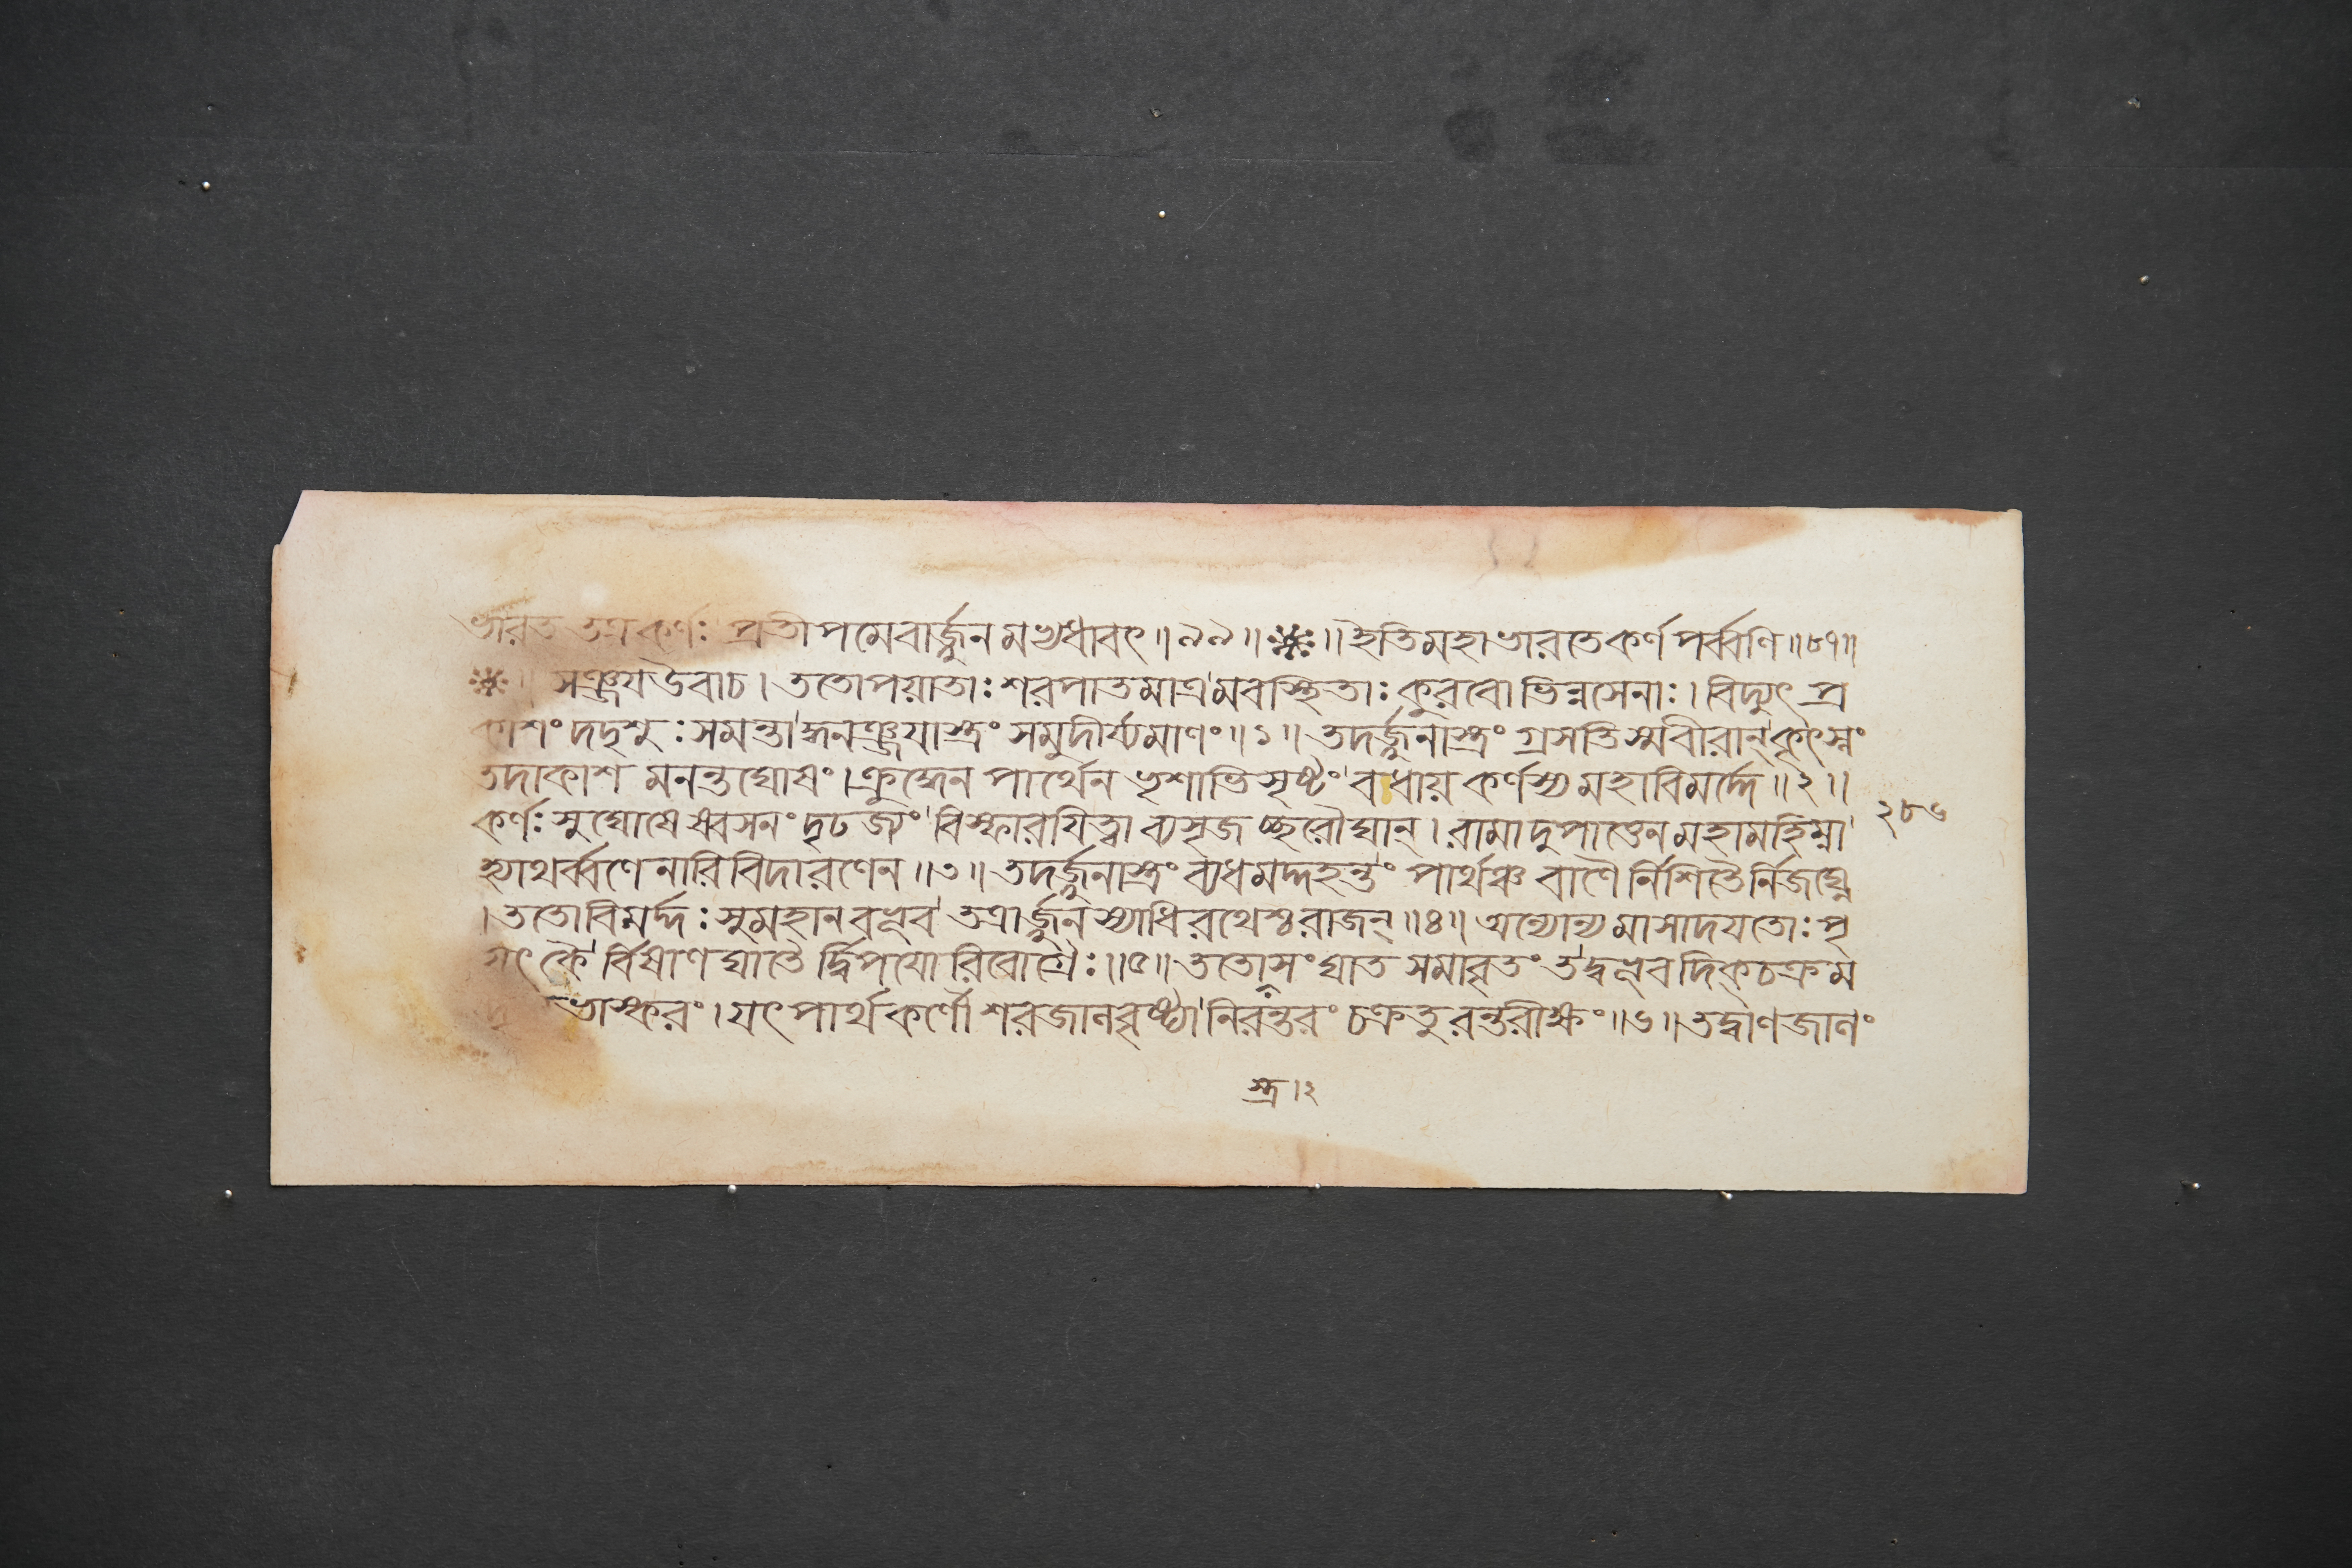 ভারত তত্র কর্ণঃ প্রতীপমেবার্জ্জুনমভ্যধাবৎ॥৯৯॥※॥ইতিমহাভারতেকর্ণপর্ব্বণি॥৮৭॥
※॥ সঞ্জয়উবাচ।ততোপয়াতাঃশরপাতমাত্রমবস্থিতাঃকুরবোভিন্নসেনাঃ।বিদ্যুৎপ্র
কাশংদদৃশুঃসমন্তাদ্ধনঞ্জয়াস্ত্রংসমুদীর্য্যমাণং॥১॥তদর্জ্জুনাস্ত্রংগ্রসতিস্মবীরান্কৃৎস্নং
তদাকাশমনন্তঘোষং।ক্রুদ্ধেনপার্থেনভৃশাভিসৃষ্টংবধায়কর্ণস্যমহাবিমর্দ্দে॥২॥
কর্ণঃসুঘোষেষ্বসনংদৃঢজ্যংবিস্ফারয়িত্বাব্যসৃজচ্ছরৌঘান্।রামাদুপাত্তেনমহামহিম্না
হ্যাথর্ব্বণেনারিবিদারণেন॥৩॥তদর্জ্জুনাস্ত্রংব্যধমদ্দহন্তংপার্থঞ্চবাণৈর্নিশিতৈর্নিজঘ্নে
।ততোবিমর্দ্দঃসুমহানবভূবতত্রার্জ্জুনস্যাধিরথেশ্চরাজন্॥৪॥অন্যোন্যমাসাদয়তোঃপৃ
ষৎকৈর্বিষাণঘাতৈর্দ্বিপয়োরিবোগ্রৈঃ॥৫॥ততোস্ত্রসংঘাতসমাবৃতংতদ্বভূবদিক্চক্রম
ভাস্করং।যৎপার্থকর্ণৌশরজালবৃষ্ট্যানিরন্তরংচক্রতুরন্তরীক্ষং॥৬॥তদ্বাণজালং
২৮৬
স্ত্র।২